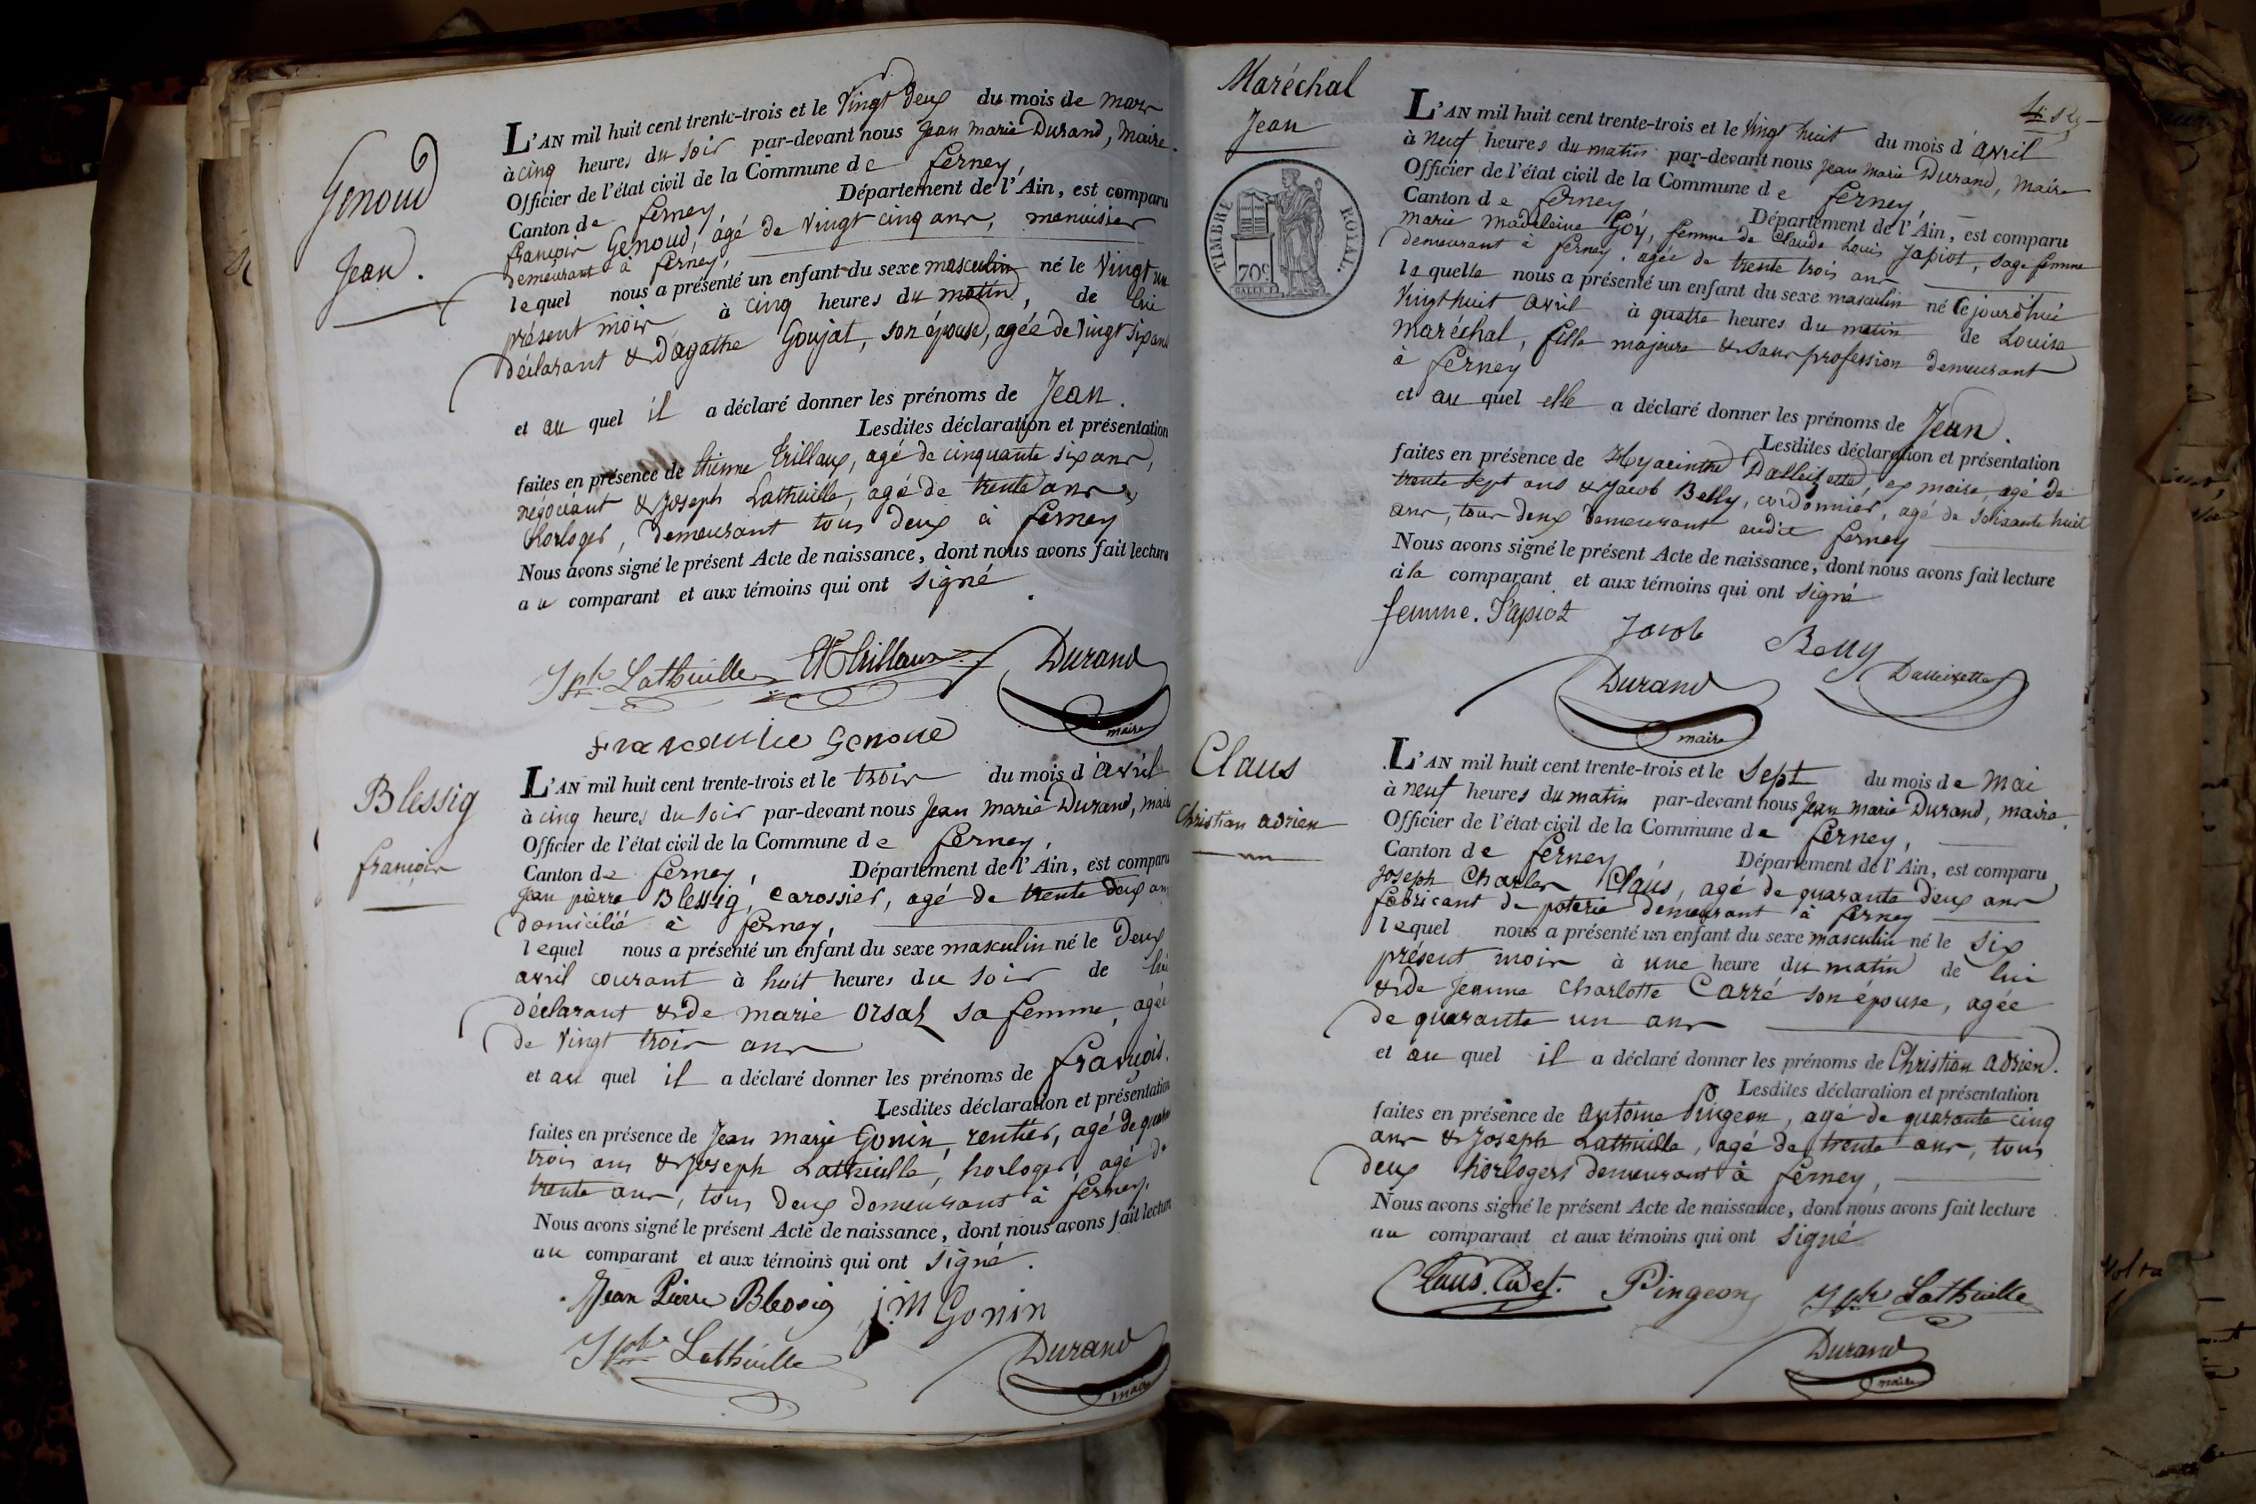 Genoud
Jean.
L'AN mil huit cent trente-trois et le Vingt deux du mois de mars
à cinq heures du soir par-devant nous Jean marie Durand, maire
Officier de l'état civil de la Commune de ferney,
Canton de ferney, Département de l'Ain, est comparu
françois Genoud, agé de vingt cinq ans, menuisier
demeurant à ferney,
lequel nous a présenté un enfant du sexe masculin né le Vingt un
présent mois à cinq heures du matin, de lui
déclarant & d'agathe Goujat, son épouse, agée de vingt six ans
et au quel il a déclaré donner les prénoms de Jean.
Lesdites déclaration et présentation
faites en présence de Etienne Trillaux, agé de cinquante six ans,
négociant & Joseph Lathuille, agé de trente ans,
horloger, demeurant tous deux à ferney
Nous avons signé le présent Acte de naissance, dont nous avons fait lecture
au comparant et aux témoins qui ont signé.
Jph Lathuille Trillaux Durand
maire
Genoud
Blessig
françois
L'AN mil huit cent trente-trois et le trois du mois d'avril
à cinq heures du soir par-devant nous Jean marie Durand, maire
Officier de l'état civil de la Commune de ferney,
Canton de ferney, Département de l'Ain, est comparu
Jean pierre Blessig, carossier, agé de trente deux ans
domicilié à ferney,
lequel nous a présenté un enfant du sexe masculin né le Deux
avril courant à huit heures du soir de lui
déclarant & de marie Orsat sa femme, agée
de vingt trois ans
et au quel il a déclaré donner les prénoms de françois.
Lesdites déclaration et présentation
faites en présence de Jean marie Gonin, rentier, agé de
trois ans & Joseph Lathuille, horloger, agé de
trente ans, tous deux demeurant à ferney.
Nous avons signé le présent Acte de naissance, dont nous avons fait lecture
au comparant et aux témoins qui ont signé.
Jean Pierre Blessig j. M Gonin
Jph Lathuille Durand
maire
Maréchal
Jean
TIMBRE ROYAL.
70c
L'AN mil huit cent trente-trois et le vingt huit du mois d'avril
à neuf heures du matin par-devant nous Jean marie Durand, maire
Officier de l'état civil de la Commune de ferney,
Canton de ferney, Département de l'Ain, est comparu
marie madeleine Goy, femme de Claude Louis Japiot, sage femme
demeurant à ferney, agée de trente trois ans
laquelle nous a présenté un enfant du sexe masculin né Cejourd'hui
Vingt huit avril à quatre heures du matin de Louise
maréchal, fille majeure & sans profession demeurant
à ferney
et au quel elle a déclaré donner les prénoms de Jean.
Lesdites déclaration et présentation
faites en présence de Hyacinthe Dalleizette, ex maire, agé de
trente sept ans & Jacob Belly, cordonnier, agé de soixante huit
ans, tous deux demeurant audit ferney
Nous avons signé le présent Acte de naissance, dont nous avons fait lecture
à la comparant et aux témoins qui ont signé
femme. Japiot Jacob Belly
Durand Dalleizette
maire
Claus
Christian adrien
L'AN mil huit cent trente-trois et le sept du mois de mai
à neuf heures du matin par-devant nous Jean marie Durand, maire
Officier de l'état civil de la Commune de ferney,
Canton de ferney, Département de l'Ain, est comparu
Joseph Charles Claus, agé de quarante deux ans
fabricant de poterie demeurant à ferney
lequel nous a présenté un enfant du sexe masculin né le six
présent mois à une heure du matin de lui
& de Jeanne Charlotte Carré son épouse, agée
de quarante un ans
et au quel il a déclaré donner les prénoms de Christian adrien.
Lesdites déclaration et présentation
faites en présence de antoine Pingeon, agé de quarante cinq
ans & Joseph Lathuille, agé de trente ans, tous
deux horlogers demeurant à ferney,
Nous avons signé le présent Acte de naissance, dont nous avons fait lecture
au comparant et aux témoins qui ont signé
Claus. Cadet. Pingeon Jph Lathuille
Durand
maire